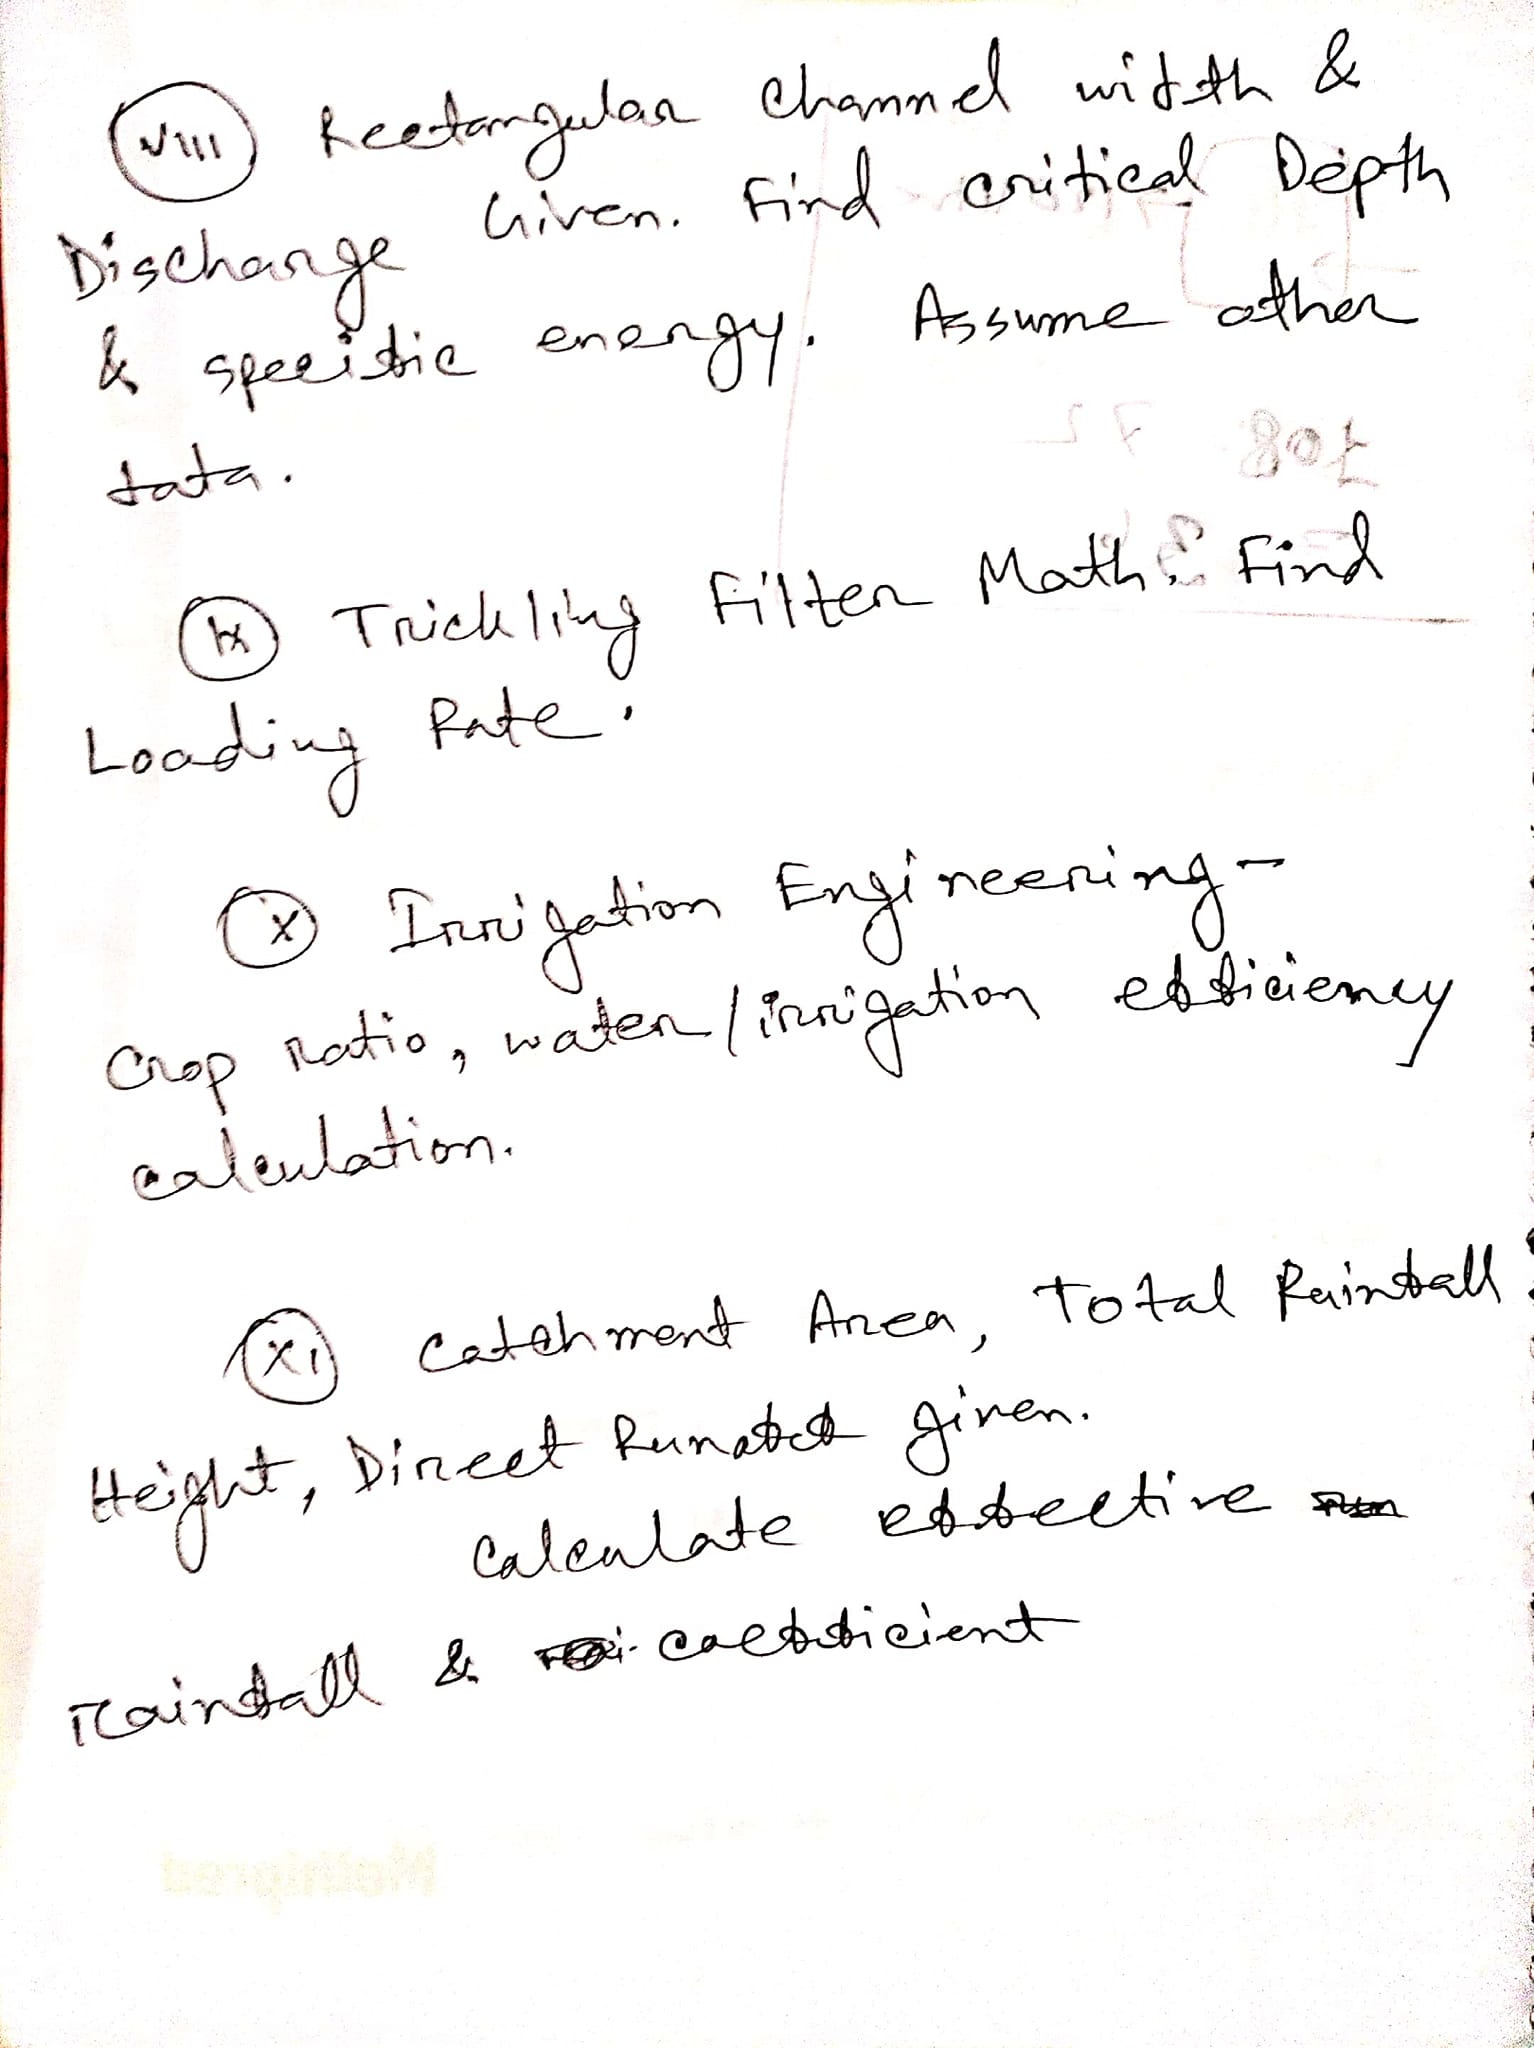 viii Rectangular Channel width &
Discharge Given. Find critical Depth
& specific energy. Assume other
data.
ix Trickling Filter Math. Find
Loading Rate.
x Irrigation Engineering -
Crop ratio, water/irrigation efficiency
calculation.
xi Catchment Area, Total Rainfall
Height, Direct Runoff given.
Calculate effective
rainfall & coefficient